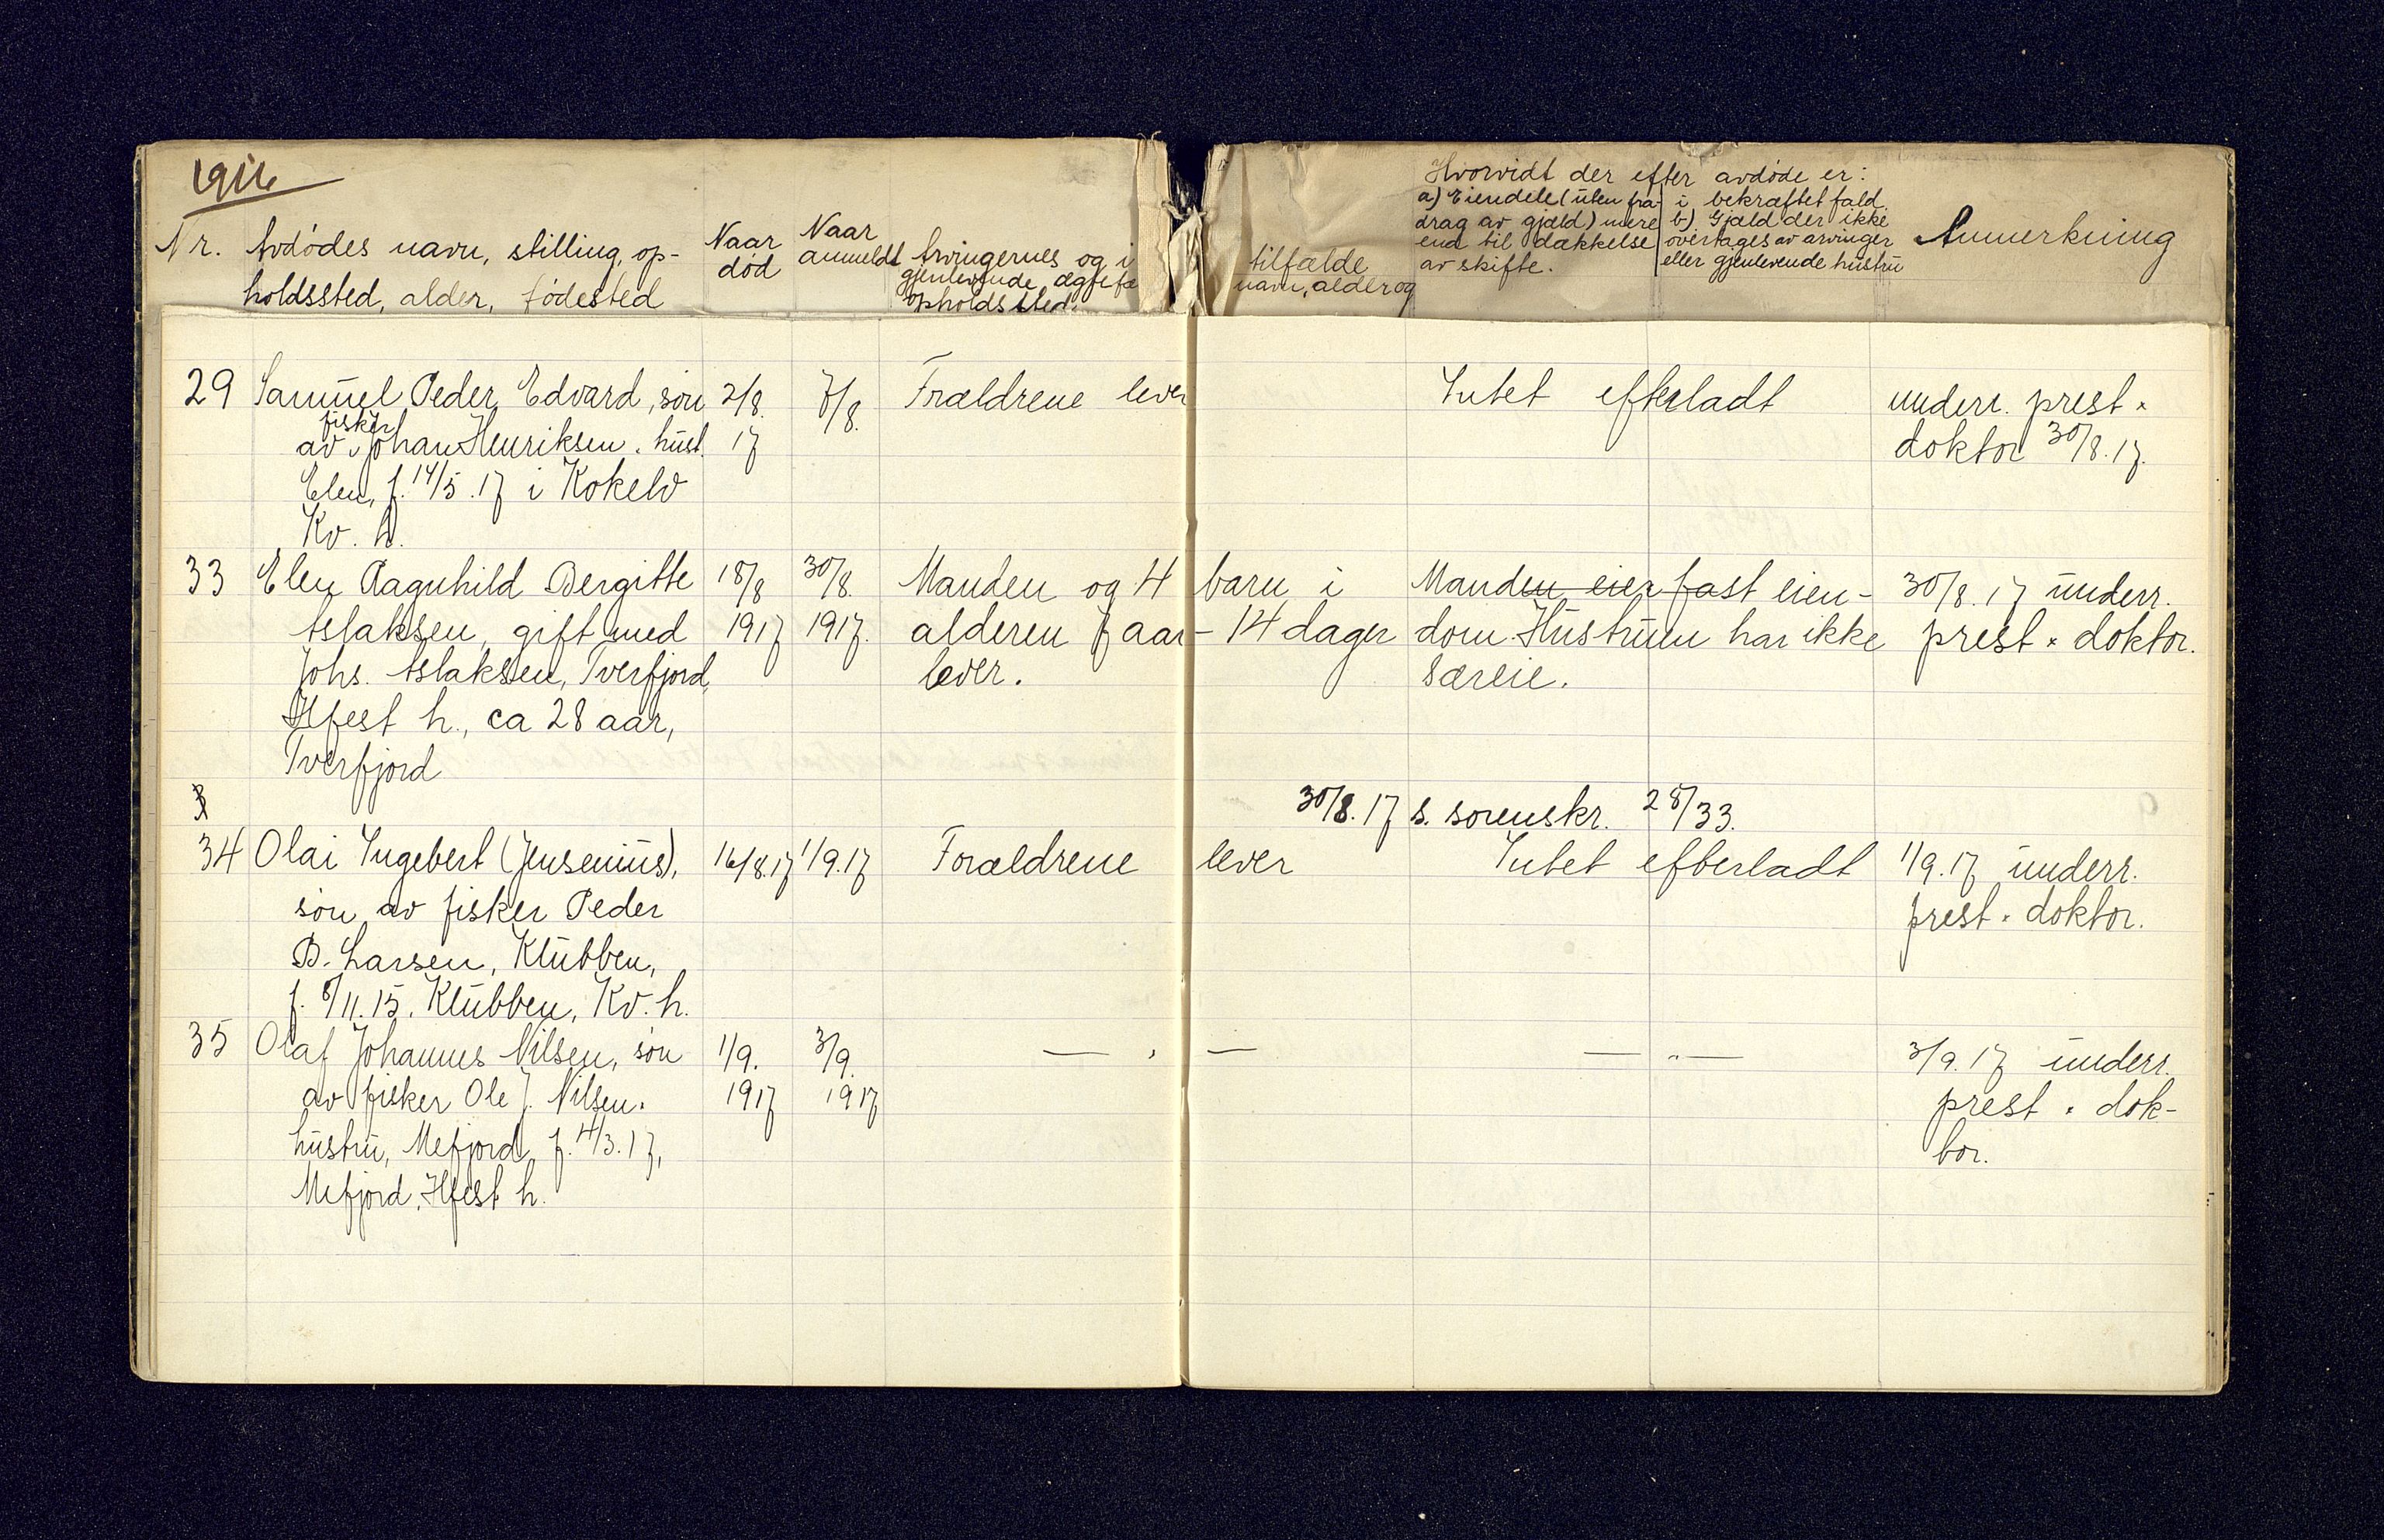 1916
Nr.
Avdödes navn, stilling, op-
holdssted, alder, födested
Naar
död
Naar
anmeldt
Arvingernes og i
gjenlevende ægtefæ
opholdssted.
tilfælde
navn, alder og
Hvorvidt der efter avdöde er:
a) Eiendele (uten fra-
drag av gjæld) mere
end til dækkelse
av skifte.
i bekræftet fald
b) Gjæld der ikke
overtages av arvinger
eller gjenlevende hustru
Anmerkning
29
Samuel Peder Edvard, sön
fisker
av Johan Henriksen . hust.
Elen, f. 14/5 .17 i Kokelv
Kv. h.
2/8.
17
7/8.
Forældrene lever
Intet efterladt
underr. prest .
doktor 30/8.17.
33
Elen Ragnhild Bergitte
Aslaksen, gift med
Johs. Aslaksen, Tverfjord,
Hfest h., ca 28 aar,
Tverfjord
18/8
1917
30/8.
1917.
Manden og 4 barn i
alderen 7 aar - 14 dager
lever.
Manden eier fast eien-
dom. Hustruen har ikke
særeie.
30/8.17 underr.
prest . doktor.
30/8.17 s. sorenskr. 28/33.
34
Olai Ingebert (Jensenius),
sön av fisker Peder
B. Larsen, Klubben,
f. 8/11.15, Klubben, Kv. h.
16/8.17
1/9.17
Forældrene lever
Intet efterladt
1/9.17 underr.
prest . doktor.
35
Olaf Johannes Nilsen, sön
av fisker Ole J. Nilsen .
hustru, Mefjord, f. 4/3.17,
Mefjord, Hfest h.
1/9.
1917
3/9.
1917
— , —
— " —
3/9.17 underr.
prest . dok-
tor.